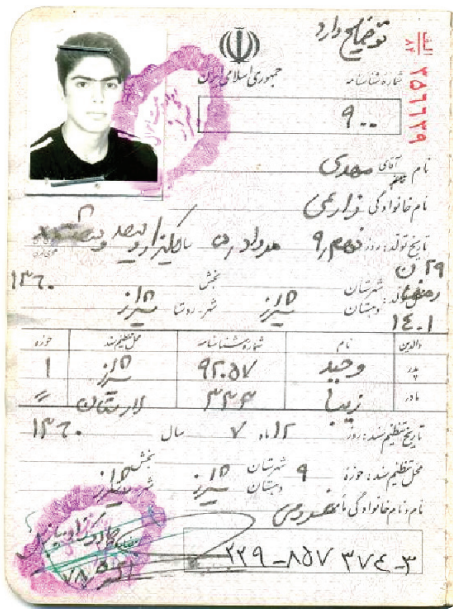 توضیح دارد
جمهوری اسلامی ایران
الف
۸۲
۲۵۶۶۲۹
شماره شناسنامه
۹۰۰
نام آقای مهدی
نام خانوادگی زارعی
تاریخ تولد: روز نهم ماه مرداد یکهزار و سیصد و شصت
۱۳۶۰
۲۹
رمضان
۱۴۰۱
محل تولد: شهرستان شیراز بخش
دهستان شهر-روستا شیراز
والدین نام شماره شناسنامه محل تنظیم سند حوزه
پدر وحید ۹۲۰۵۷ شیراز ۱
مادر زیبا ۳۳۳ لارستان
تاریخ تنظیم سند: روز ۱۲ ماه ۷ سال ۱۳۶۰
محل تنظیم سند: حوزه ۹ شهرستان شیراز بخش
دهستان شهر شیراز
نام و نام خانوادگی مأمور
۲۲۹-۸۵۷۳۷۴-۳